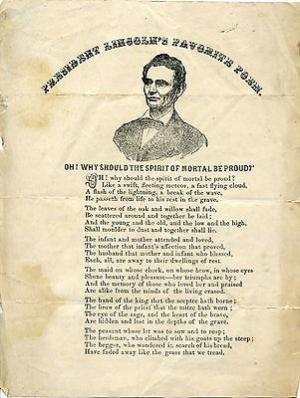 PRESIDENT LINCOLN'S FAVORITE POEM.
OH! WHY SHOULD THE SPIRIT OF MORTAL BE PROUD?
OH! why should the spirit of mortal be proud?
Like a swift, fleeting meteor, a fast flying cloud,
A flash of the lightning, a break of the wave,
He passeth from life to his rest in the grave.
The leaves of the oak and willow shall fade,
Be scattered around and together be laid;
And the young and the old, and the low and the high,
Shall moulder to dust and together shall lie.
The infant and mother attended and loved,
The mother that infant's affection that proved,
The husband that mother and infant who blessed,
Each, all, are away to their dwellings of rest.
The maid on whose cheek, on whose brow, in whose eyes
Shone beauty and pleasure—her triumphs are by;
And the memory of those who loved her and praised
Are alike from the minds of the living erased.
The hand of the king that the sceptre hath borne;
The brow of the priest that the mitre hath worn;
The eye of the sage, and the heart of the brave,
Are hidden and lost in the depths of the grave.
The peasant whose lot was to sow and to reap;
The herdsman, who climbed with his goats up the steep;
The beggar, who wandered in search of his bread,
Have faded away like the grass that we tread.